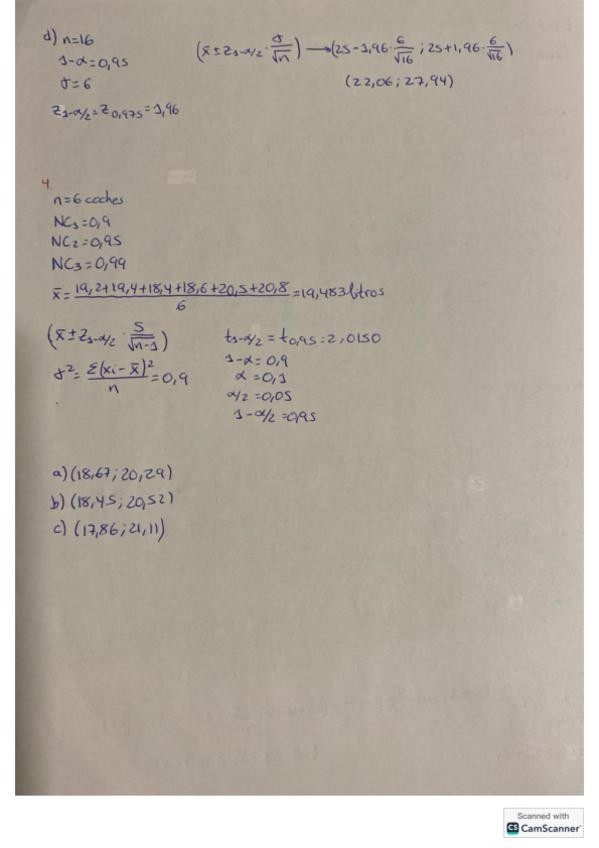 d) n=16
1-α=0,95
σ=6
z1-α/2=z0,975=1,96
(x̄ ± z1-α/2 · σ/√n) → (25-1,96·6/√16 ; 25+1,96·6/√16)
(22,06 ; 27,94)
4.
n=6 coches
NC1=0,9
NC2=0,95
NC3=0,99
x̄ = (19,2+19,4+18,4+18,6+20,5+20,8)/6 = 19,483 litros
(x̄ ± z1-α/2 · S/√n-1)
σ² = Σ(xi - x̄)²/n = 0,9
t1-α/2 = t0,95 = 2,0150
1-α=0,9
α=0,1
α/2=0,05
1-α/2=0,95
a) (18,67 ; 20,29)
b) (18,45 ; 20,52)
c) (17,86 ; 21,11)
Scanned with
CS CamScanner